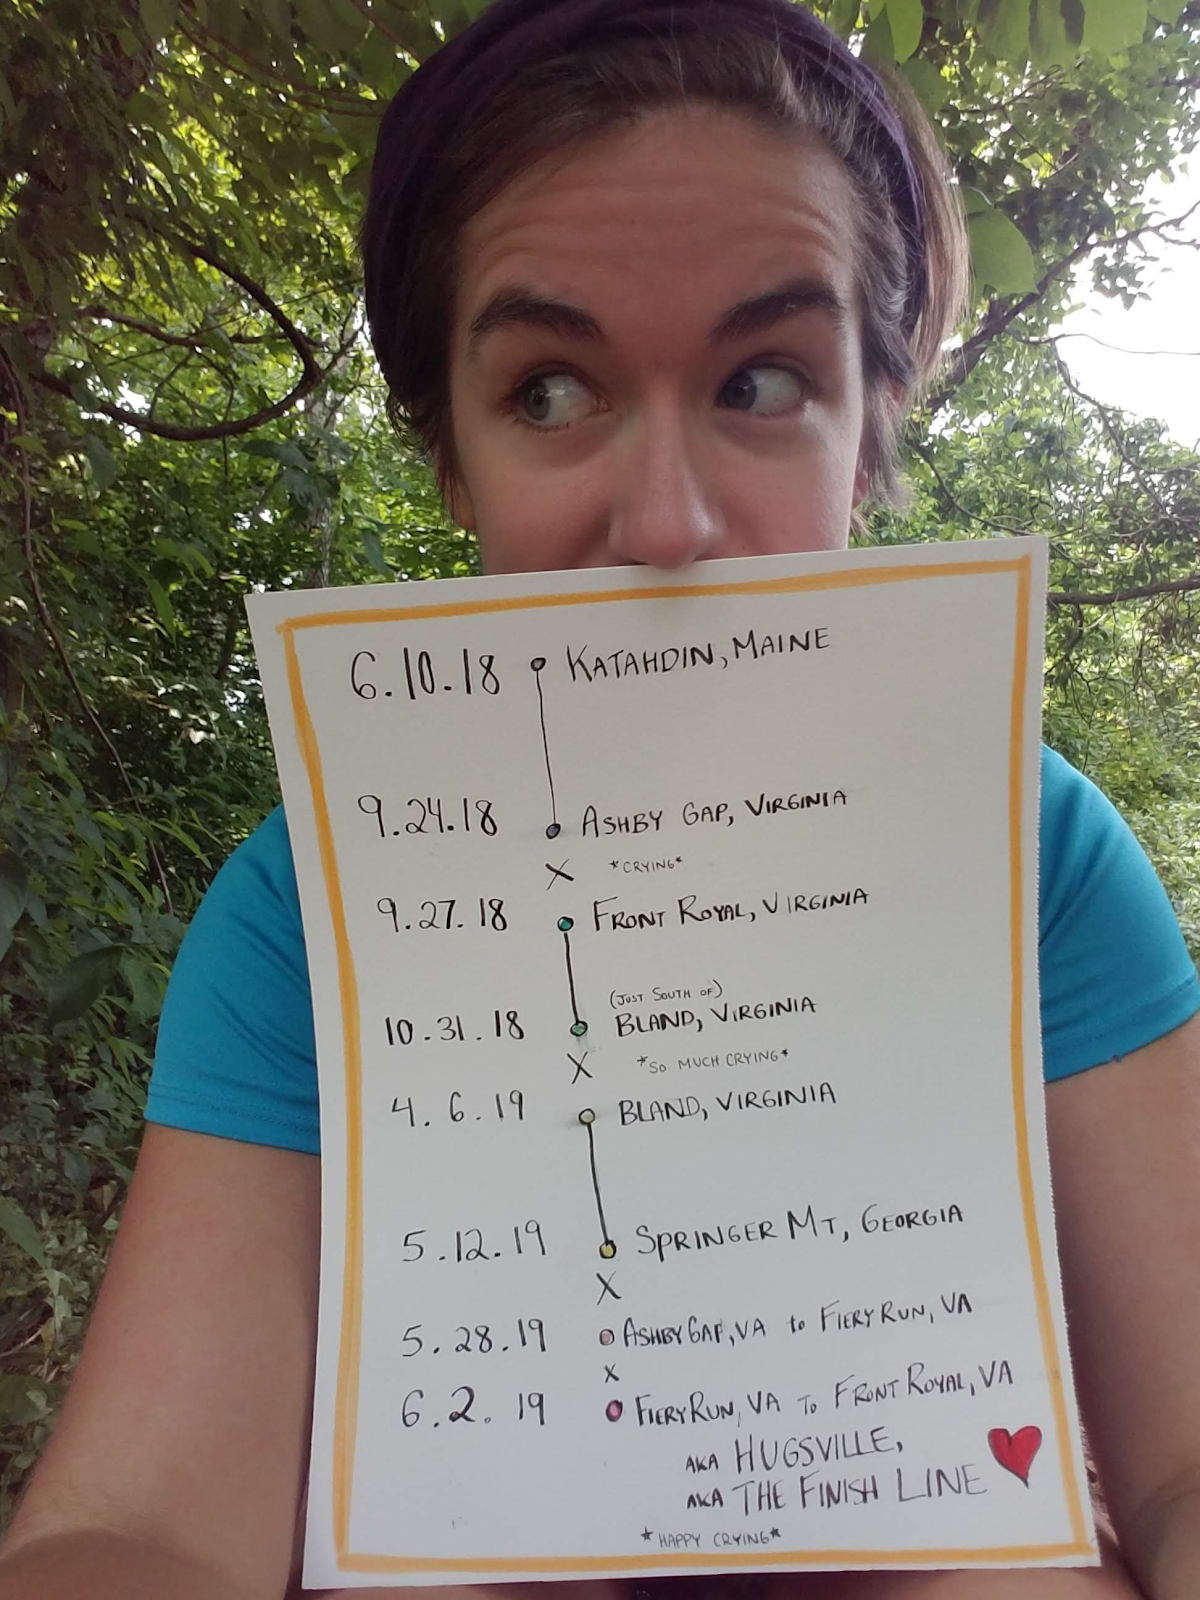 6.10.18 KATAHDIN, MAINE
9.24.18 ASHBY GAP, VIRGINIA
X *CRYING*
9.27.18 FRONT ROYAL, VIRGINIA
(JUST SOUTH OF)
10.31.18 BLAND, VIRGINIA
X *SO MUCH CRYING*
4.6.19 BLAND, VIRGINIA
5.12.19 SPRINGER MT, GEORGIA
X
5.28.19 ASHBY GAP, VA to FIERY RUN, VA
X
6.2.19 FIERY RUN, VA TO FRONT ROYAL, VA
AKA HUGSVILLE,
AKA THE FINISH LINE
*HAPPY CRYING*